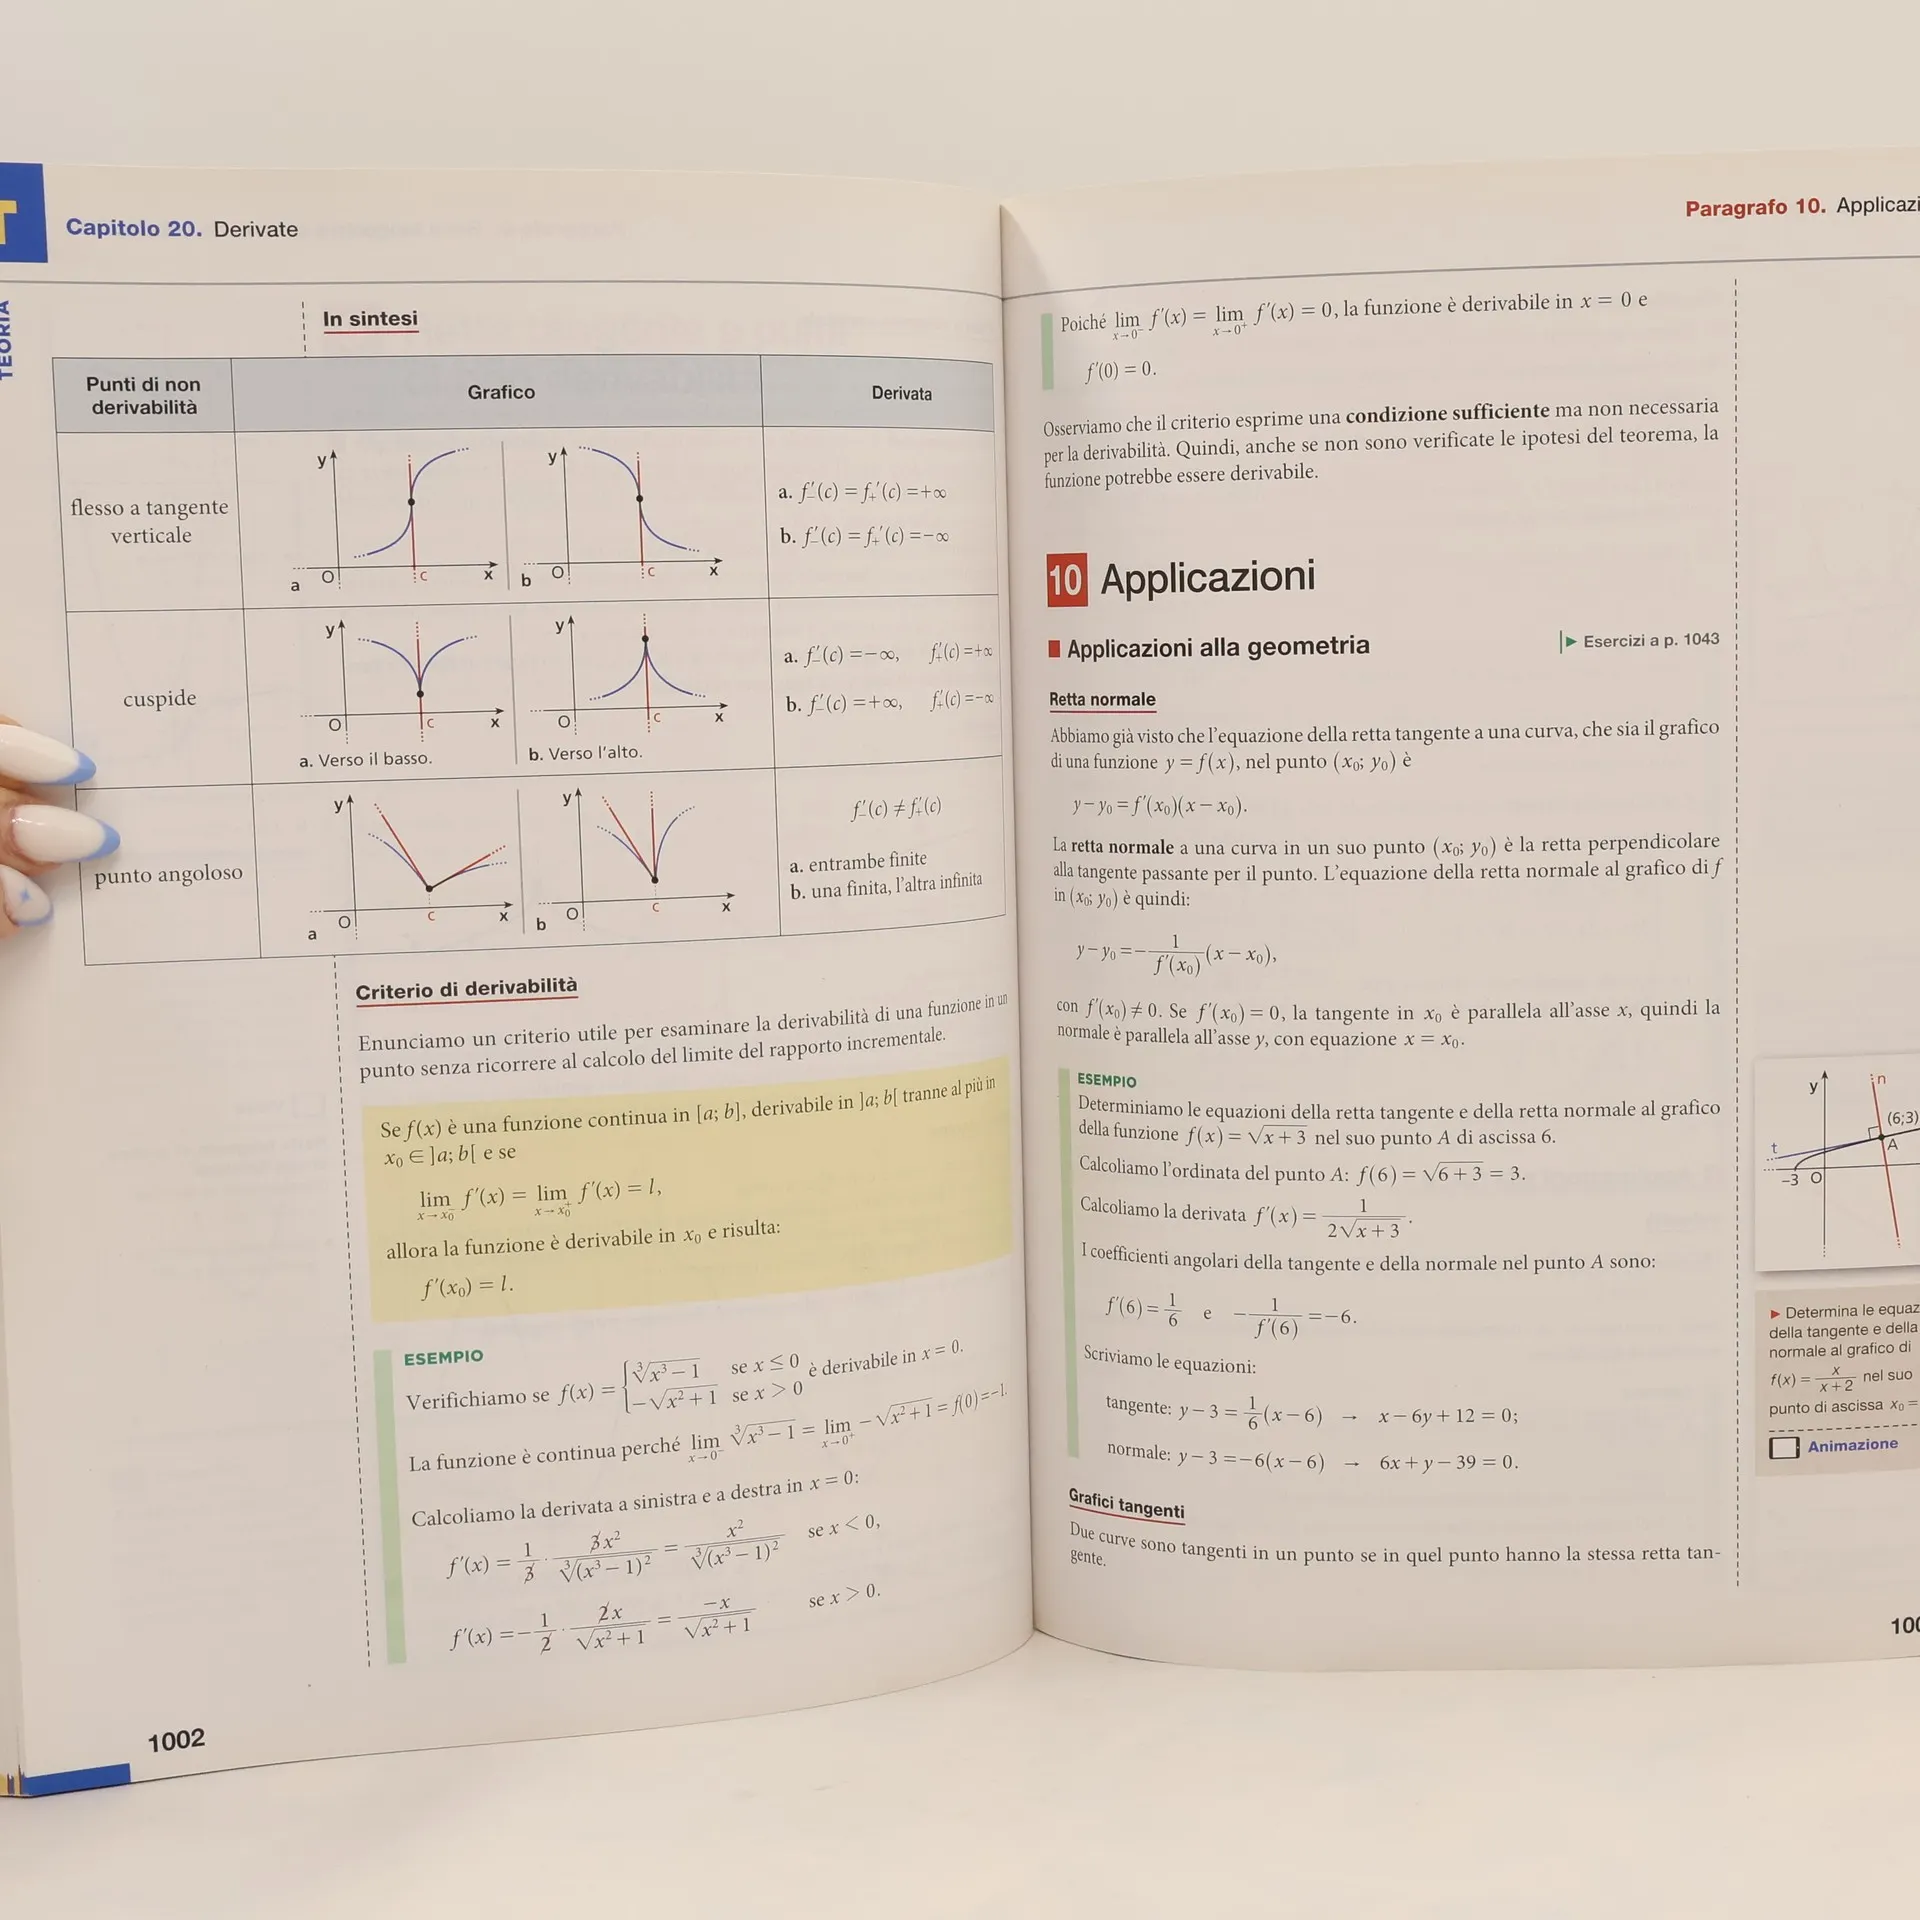 T
Capitolo 20. Derivate
TEORIA
In sintesi
Punti di non derivabilità
Grafico
Derivata
flesso a tangente
verticale
y
O
c
x
a
y
O
c
x
b
a. f₋′(c) = f₊′(c) = +∞
b. f₋′(c) = f₊′(c) = −∞
cuspide
y
O
c
x
a. Verso il basso.
y
O
c
x
b. Verso l'alto.
a. f₋′(c) = −∞, f₊′(c) = +∞
b. f₋′(c) = +∞, f₊′(c) = −∞
punto angoloso
y
O
c
x
a
y
O
c
x
b
f₋′(c) ≠ f₊′(c)
a. entrambe finite
b. una finita, l'altra infinita
Criterio di derivabilità
Enunciamo un criterio utile per esaminare la derivabilità di una funzione in un
punto senza ricorrere al calcolo del limite del rapporto incrementale.
Se f(x) è una funzione continua in [a; b], derivabile in ]a; b[ tranne al più in
x₀ ∈ ]a; b[ e se
lim x→x₀⁻ f′(x) = lim x→x₀⁺ f′(x) = l,
allora la funzione è derivabile in x₀ e risulta:
f′(x₀) = l.
ESEMPIO
Verifichiamo se f(x) = { ∛(x³ − 1) se x ≤ 0
−√(x² + 1) se x > 0 è derivabile in x = 0.
La funzione è continua perché lim x→0⁻ ∛(x³ − 1) = lim x→0⁺ −√(x² + 1) = f(0) = −1.
Calcoliamo la derivata a sinistra e a destra in x = 0:
f′(x) = 1/3 · 3x²/∛(x³ − 1)² = x²/∛(x³ − 1)² se x < 0,
f′(x) = −1/2 · 2x/√(x² + 1) = −x/√(x² + 1) se x > 0.
1002
Paragrafo 10. Applicazi
Poiché lim x→0⁻ f′(x) = lim x→0⁺ f′(x) = 0, la funzione è derivabile in x = 0 e
f′(0) = 0.
Osserviamo che il criterio esprime una condizione sufficiente ma non necessaria
per la derivabilità. Quindi, anche se non sono verificate le ipotesi del teorema, la
funzione potrebbe essere derivabile.
10 Applicazioni
Applicazioni alla geometria
Esercizi a p. 1043
Retta normale
Abbiamo già visto che l'equazione della retta tangente a una curva, che sia il grafico
di una funzione y = f(x), nel punto (x₀; y₀) è
y − y₀ = f′(x₀)(x − x₀).
La retta normale a una curva in un suo punto (x₀; y₀) è la retta perpendicolare
alla tangente passante per il punto. L'equazione della retta normale al grafico di f
in (x₀; y₀) è quindi:
y − y₀ = −1/f′(x₀) (x − x₀),
con f′(x₀) ≠ 0. Se f′(x₀) = 0, la tangente in x₀ è parallela all'asse x, quindi la
normale è parallela all'asse y, con equazione x = x₀.
ESEMPIO
Determiniamo le equazioni della retta tangente e della retta normale al grafico
della funzione f(x) = √(x + 3) nel suo punto A di ascissa 6.
Calcoliamo l'ordinata del punto A: f(6) = √(6 + 3) = 3.
Calcoliamo la derivata f′(x) = 1/(2√(x + 3)).
I coefficienti angolari della tangente e della normale nel punto A sono:
f′(6) = 1/6 e −1/f′(6) = −6.
Scriviamo le equazioni:
tangente: y − 3 = 1/6(x − 6) → x − 6y + 12 = 0;
normale: y − 3 = −6(x − 6) → 6x + y − 39 = 0.
Grafici tangenti
Due curve sono tangenti in un punto se in quel punto hanno la stessa retta tan-
gente.
y
n
(6;3)
A
t
−3
O
▶ Determina le equaz
della tangente e della
normale al grafico di
f(x) = x/(x + 2) nel suo
punto di ascissa x₀ =
Animazione
100